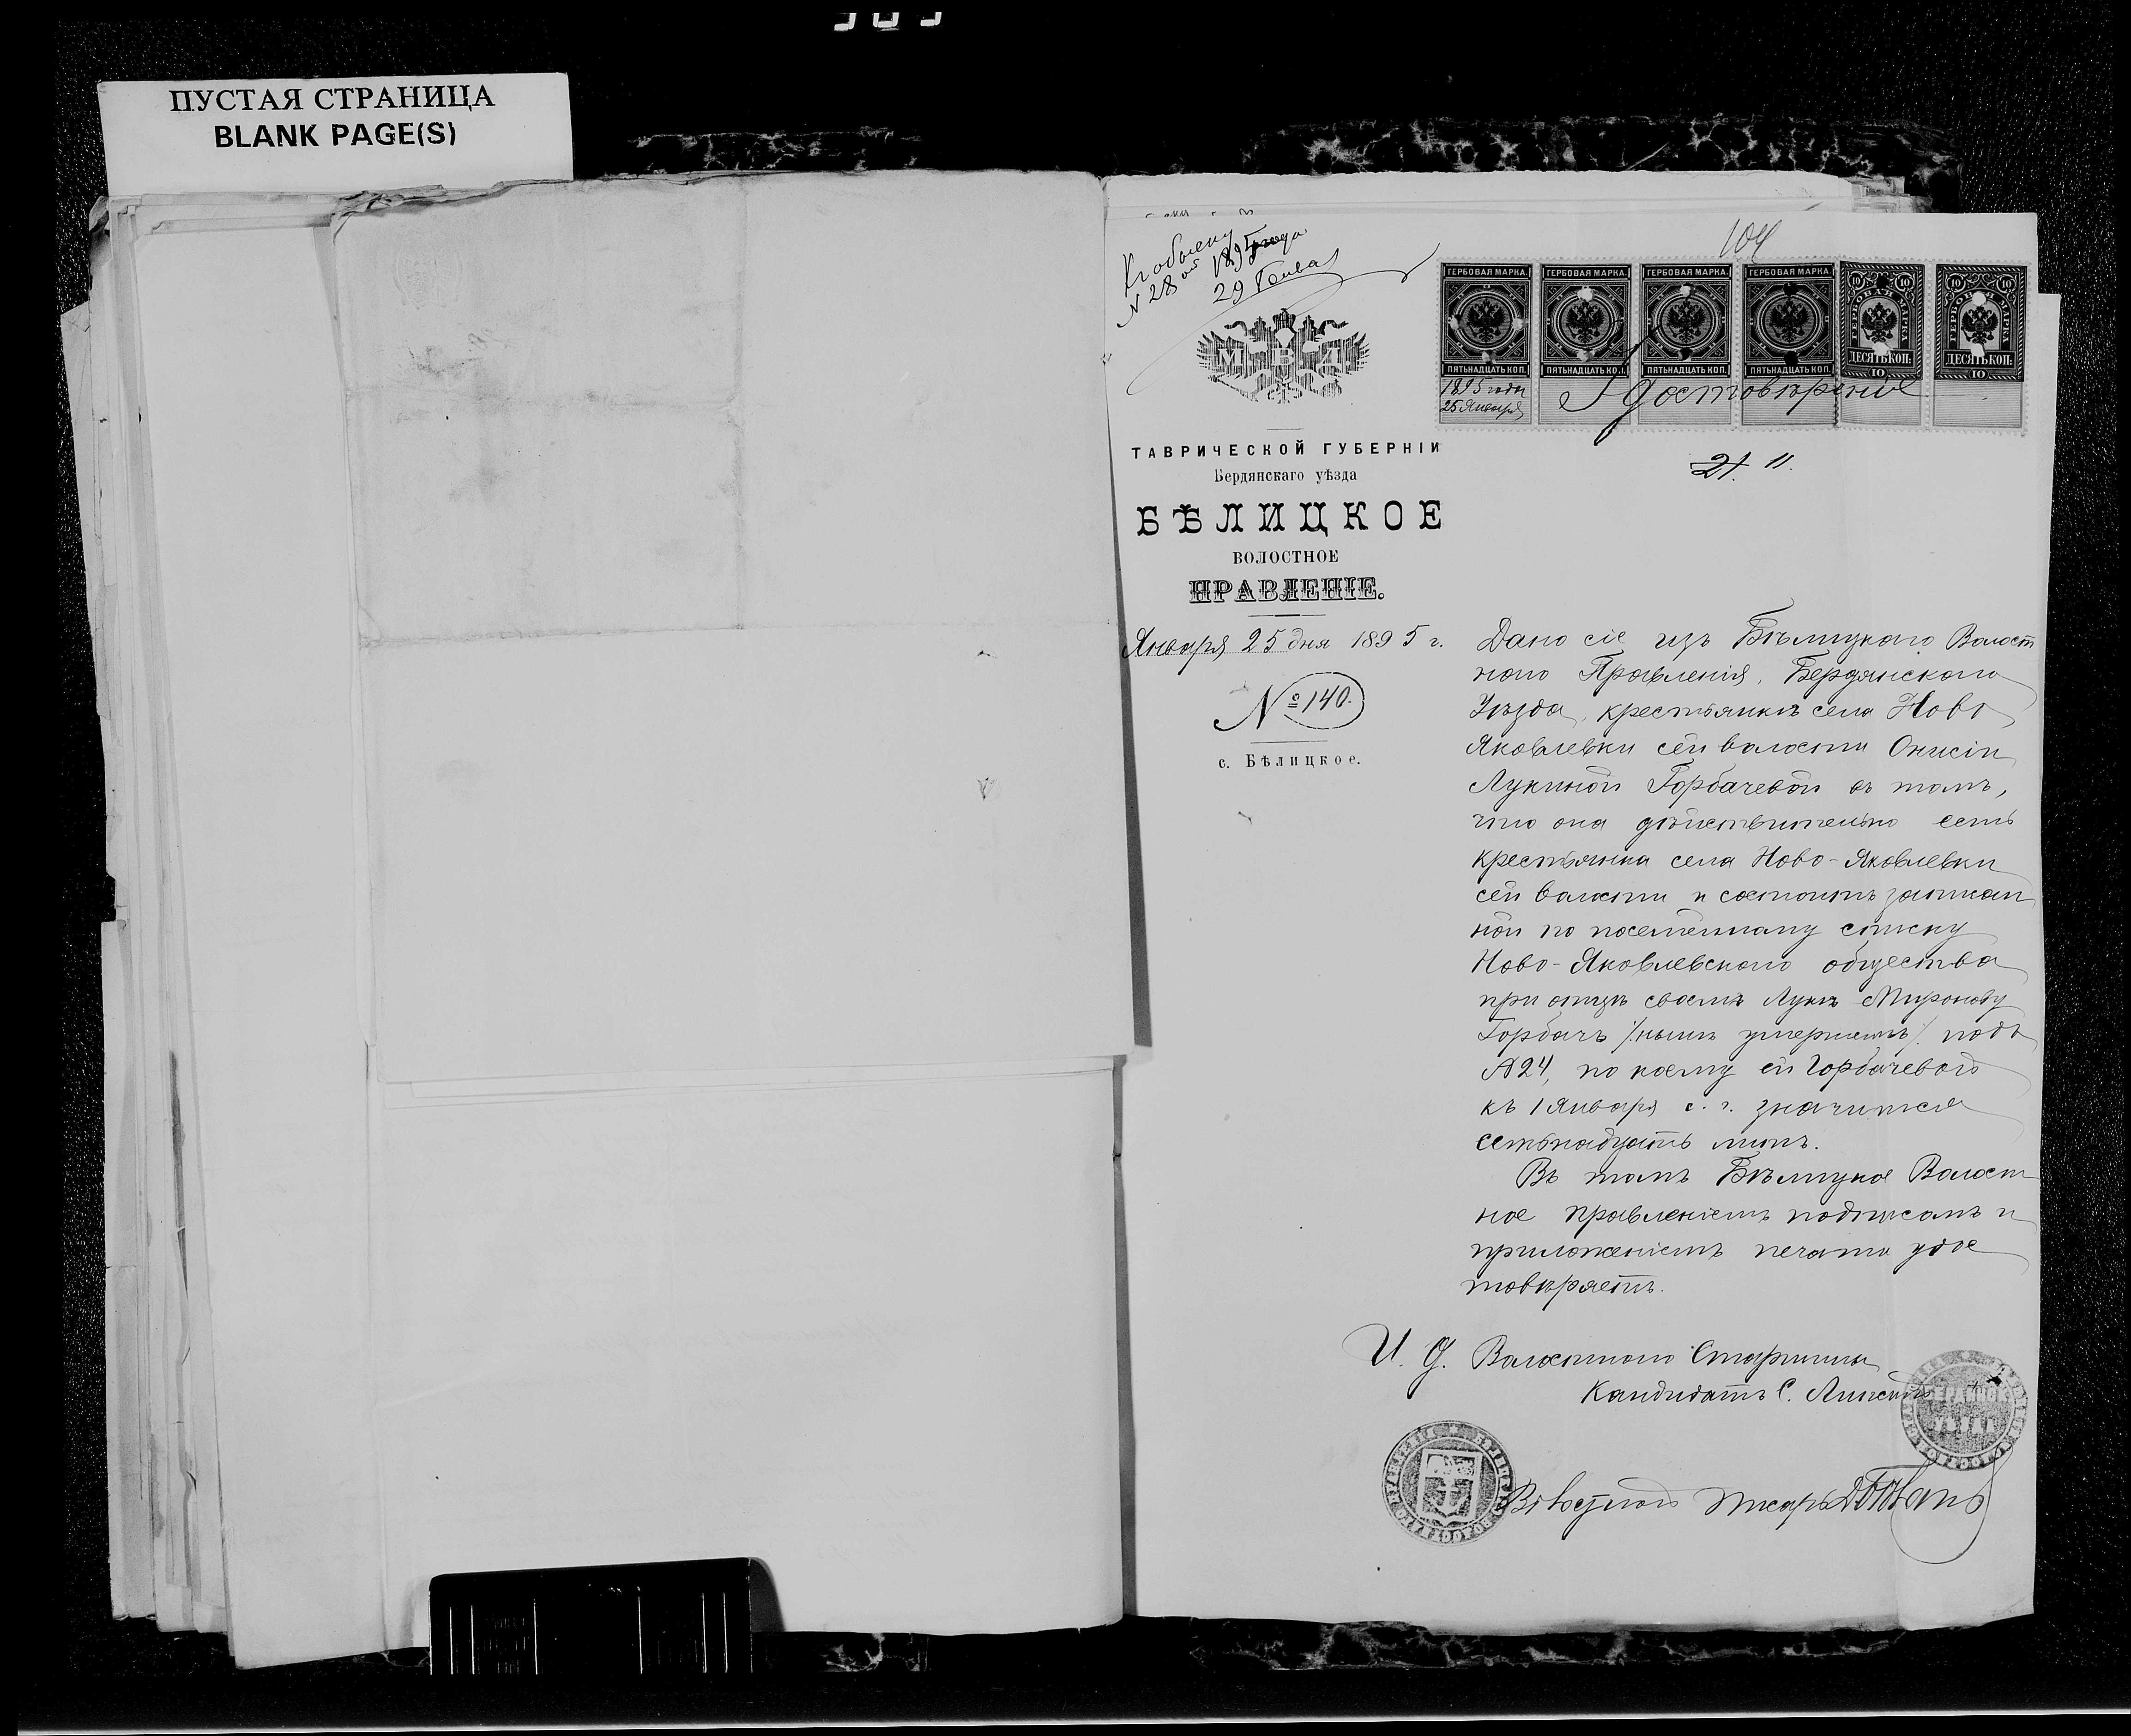 ПУСТАЯ СТРАНИЦА
BLANK PAGE(S)
104
1895 года
29 Генваря
М В Д
ГЕРБОВАЯ МАРКА. ГЕРБОВАЯ МАРКА. ГЕРБОВАЯ МАРКА. ГЕРБОВАЯ МАРКА.
ПЯТЬНАДЦАТЬ КОП. ПЯТЬНАДЦАТЬ КОП. ПЯТЬНАДЦАТЬ КОП. ПЯТЬНАДЦАТЬ КОП. ДЕСЯТЬ КОП. 10 ДЕСЯТЬ КОП. 10
1895 года
25 Января
Удостовѣреніе
21. 11.
ТАВРИЧЕСКОЙ ГУБЕРНІИ
Бердянскаго уѣзда
БѢЛИЦКОЕ
ВОЛОСТНОЕ
ПРАВЛЕНІЕ.
Января 25 дня 1895 г.
№ 140.
с. Бѣлицкое.
Дано сіе изъ Бѣлицкаго Волост
наго Правленія, Бердянскаго
Уѣзда, крестьянкѣ села Ново
Яковлевки сей волости Онисіи
Лукиной Горбачевой въ томъ,
что она дѣйствительно есть
крестьянка села Ново-Яковлевки
сей волости и состоитъ записан
ной по посемейному списку
Ново-Яковлевскаго общества
при отцѣ своемъ Лукѣ Миронову
Горбачъ /нынѣ умершемъ/ подъ
№ 24, по коему ей Горбачевой
къ 1 Января с. г. значится
семьнадцать лѣтъ.
Въ томъ Бѣлицкое Волост
ное Правленіемъ подписомъ и
приложеніемъ печати удос
товѣряетъ.
И. Д. Волостного Старшины
Кандидатъ С.
Волостной Писарь